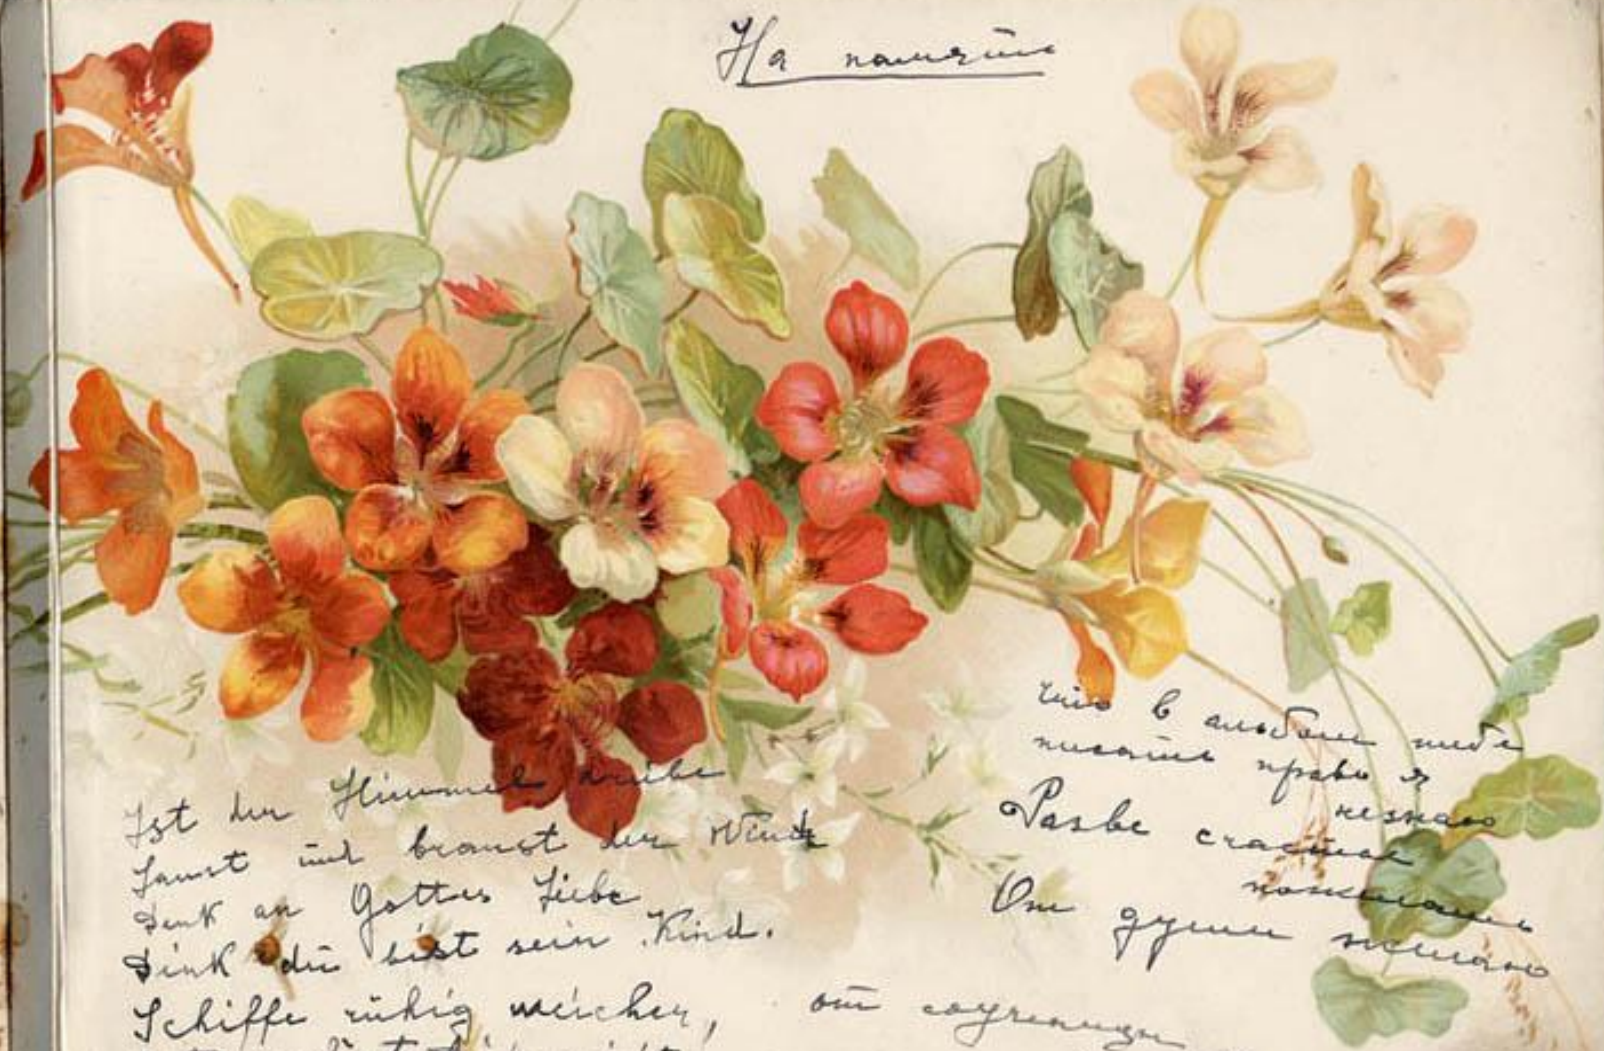 На память
Ist der Himmel trübe
Saust und braust der Wind
Denk an Gottes Liebe
Denk du bist sein Kind.
Schiffe ruhig weiter,
Что в альбом тебе
писать право я
незнаю
Разве счастье
пожелать
От души желаю
от соученицы